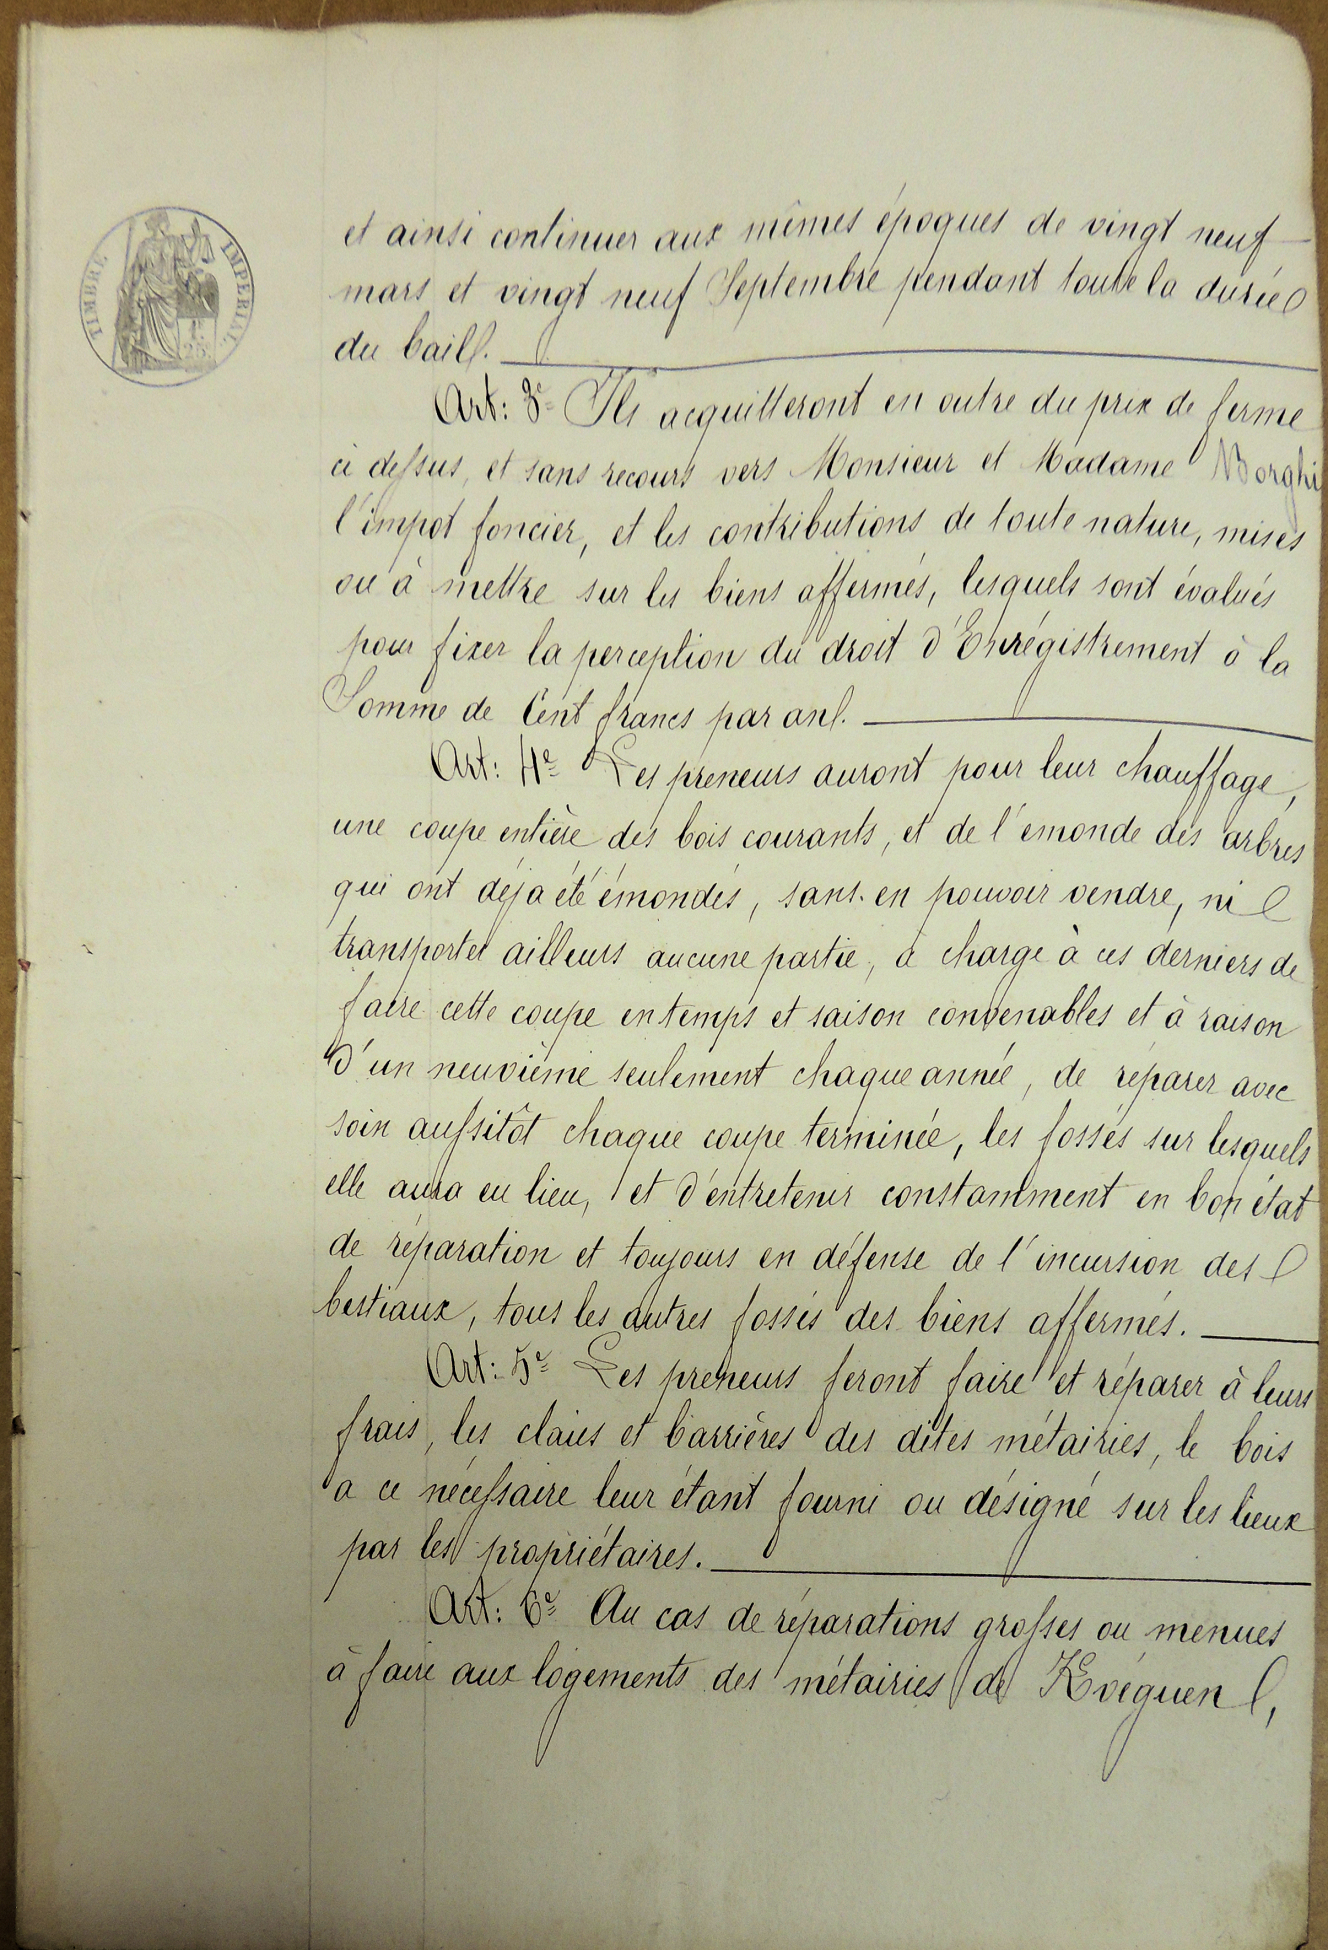 TIMBRE IMPERIAL
et ainsi continuer aux mêmes époques de vingt neuf
mars et vingt neuf Septembre pendant toute la durée
du bail.
Art: 3e Ils acquitteront en outre du prix de ferme
ci dessus, et sans recours vers Monsieur et Madame Borghi
l'impot foncier, et les contributions de toute nature, mises
ou à mettre sur les biens affermés, lesquels sont évalués
pour fixer la perception du droit d'Enrégistrement à la
Somme de Cent francs par an.
Art: 4e Les preneurs auront pour leur chauffage,
une coupe entière des bois courants, et de l'émonde des arbres
qui ont déja été émondés, sans en pouvoir vendre, ni
transporter ailleurs aucune partie, à charge à ces dérniers de
faire cette coupe en temps et saison convenables et à raison
d'un neuvième seulement chaque année, de réparer avec
soin aussitôt chaque coupe terminée, les fossés sur lesquels
elle aura eu lieu, et d'entretenir constamment en bon état
de réparation et toujours en défense de l'incursion des
bestiaux, tous les autres fossés des biens affermés.
Art: 5e Les preneurs feront faire et réparer à leurs
frais, les claies et barrières des dites métairies, le bois
a ce nécessaire leur étant fourni ou désigné sur les lieux
par les propriétaires.
Art: 6e Au cas de réparations grosses ou menues
à faire aux logements des métairies de Kvéguen,